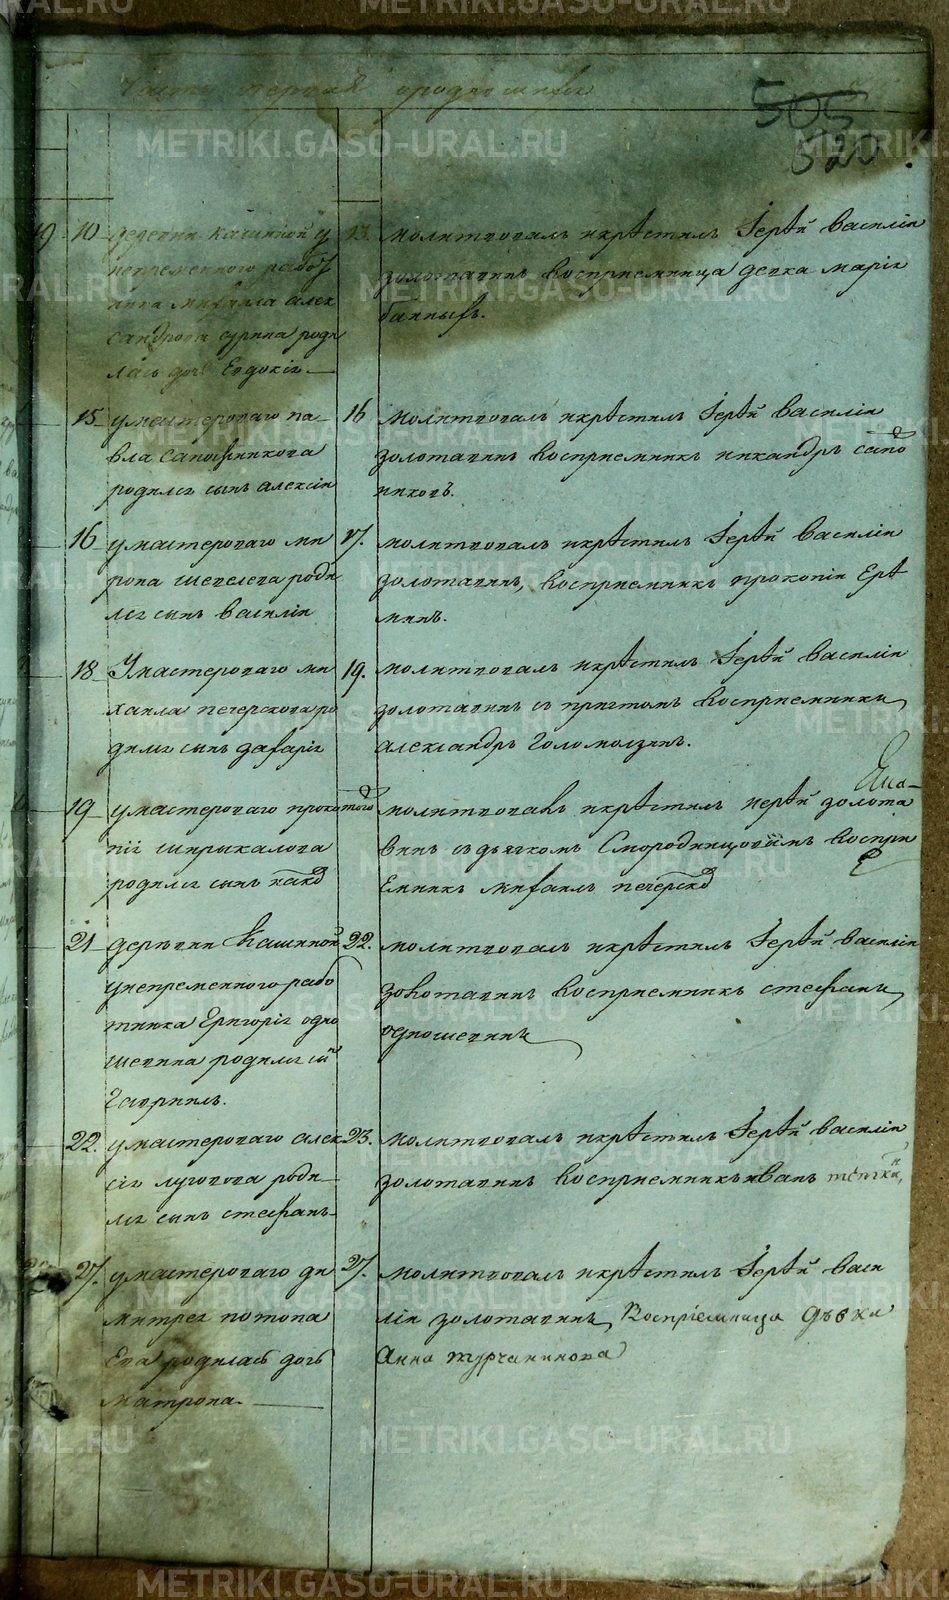 Часть первая о родившихся
505
520
19 10 деревни кашиной у
непременного работ
ника михаила алек
сандрова сурина роди
лась дочь Евдокія
13. молитвовал и крѣстил Іерѣй василіи
золотавин восприемница девка марія
15 у мастероваго па
вла сапожникова
родился сынъ алексіи
16 молитвовалъ и крѣстилъ Іерѣй василіи
золотавинъ восприемникъ никандръ сапо
жниковъ.
16 у мастероваго ми
рона шевелева роди
лся сынъ василіи
17. молитвовалъ и крѣстилъ Іерѣй василіи
золотавинъ, восприемникъ прокопіи Ерѣ
минъ.
18 У мастероваго ми
хаила печерскова ро
дился сынъ захарія
19. молитвовалъ и крѣстилъ Іерѣй василіи
золотавинъ съ притомъ восприемникъ
александръ Голомолзинъ.
19 у мастероваго проко
пія ширыкалова
родился сынъ
тогод молитвовавъ и крѣстилъ иерѣй золота
винъ съ дьячкомъ Смородинцовымъ воспри
Емникъ михаилъ печерскд
21 деревни Кашиной
у непременного рабо
тника Григорія одно
шевина родился сынъ
Гавриилъ.
22. молитвовалъ и крѣстилъ Іерѣй василіи
золотавинъ восприемникъ стефанъ
одношевинъ
22. у мастероваго алек
сія луговова роди
лся сынъ стефанъ
23. молитвовалъ и крѣстилъ Іерѣй василіи
золотавинъ восприемникъ иванъ
27. у мастероваго ди
митрея потопа
Ева родилась дочь
матрона.
27. молитвовалъ и крѣстилъ Іерѣй васи
ліи золотавинъ, Воспріемница дѣвка
Анна турчанинова
METRIKI.GASO-URAL.RU